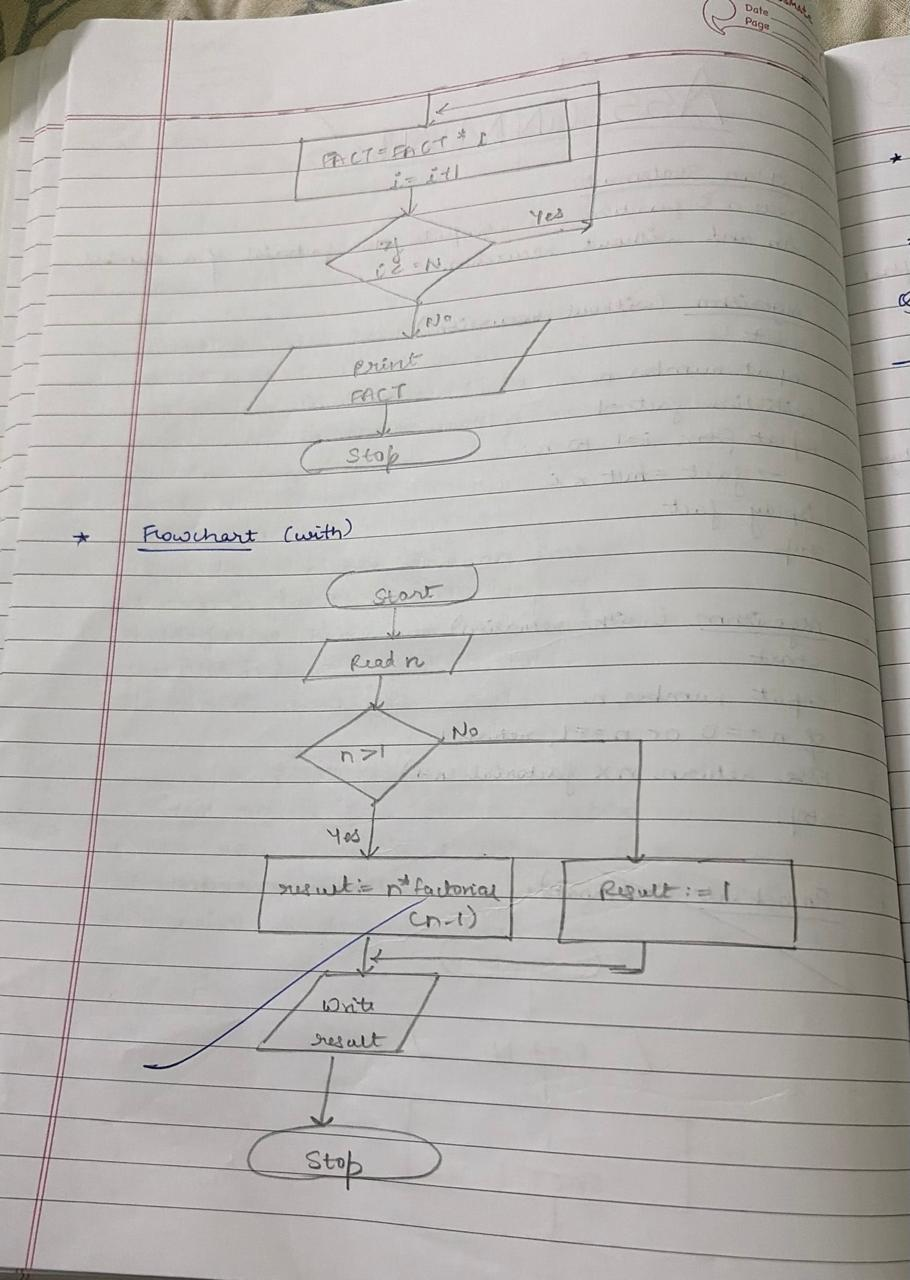 Date
Page
FACT=FACT * i
i = i+1
Yes
If
i <= N
No
Print
FACT
Stop
* Flowchart (with)
Start
Read n
No
n>1
Yes
result:= n*factorial
(n-1)
Result:=1
Write
result
Stop